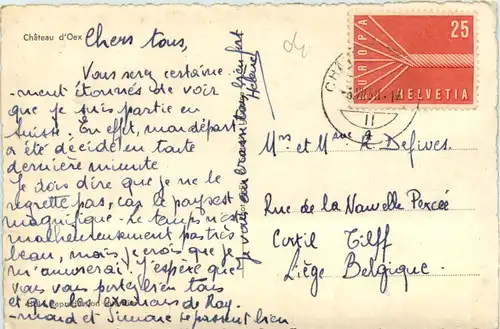 Château d'Oex
Chers tous,
Vous serez certaine-
-ment étonnés de voir
que je suis partie en
Suisse. En effet, mon départ
a été décidé en toute
dernière minute.
Je dois dire que je ne le
regrette pas, car le pays est
magnifique. Le temps n'est
malheureusement pas très
beau, mais je crois que je
m'amuserai. J'espère que
vous vous portez bien tous
et que les examens de Ray-
-mond et Simone se passent bien
Je vous embrasse tous bien fort
EUROPA
25
HELVETIA
CHÂ
II
Mr et Mme Defives.
Rue de la Nouvelle Percée
Cortil Tilff
Liège Belgique.